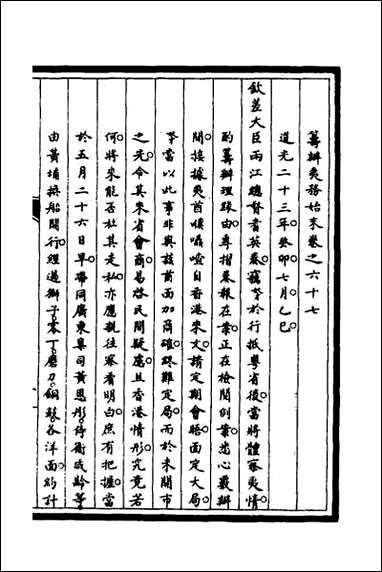 籌辦夷務始末卷之六十七
道光二十三年癸卯七月乙巳
欽差大臣兩江總督耆英奏竊奴才於行抵粵省後當將體察夷情
酌籌辦理緣由專摺奏報在案正在檢閱例案悉心覈辦
間接據夷酋噗嚅喳自香港來文請定期會晤面定大局
奴才當以此事非與該酋面加商確終難定局而於未開市
之先令其來省會商易啓民間疑慮且香港情形究竟若
何將來能否杜其走私亦應親往察看明白庶有把握當
於五月二十六日早帶同廣東臬司黃恩彤侍衛咸齡等
由黃埔換船開行經過獅子零丁磨刀銅鼓各洋面約計